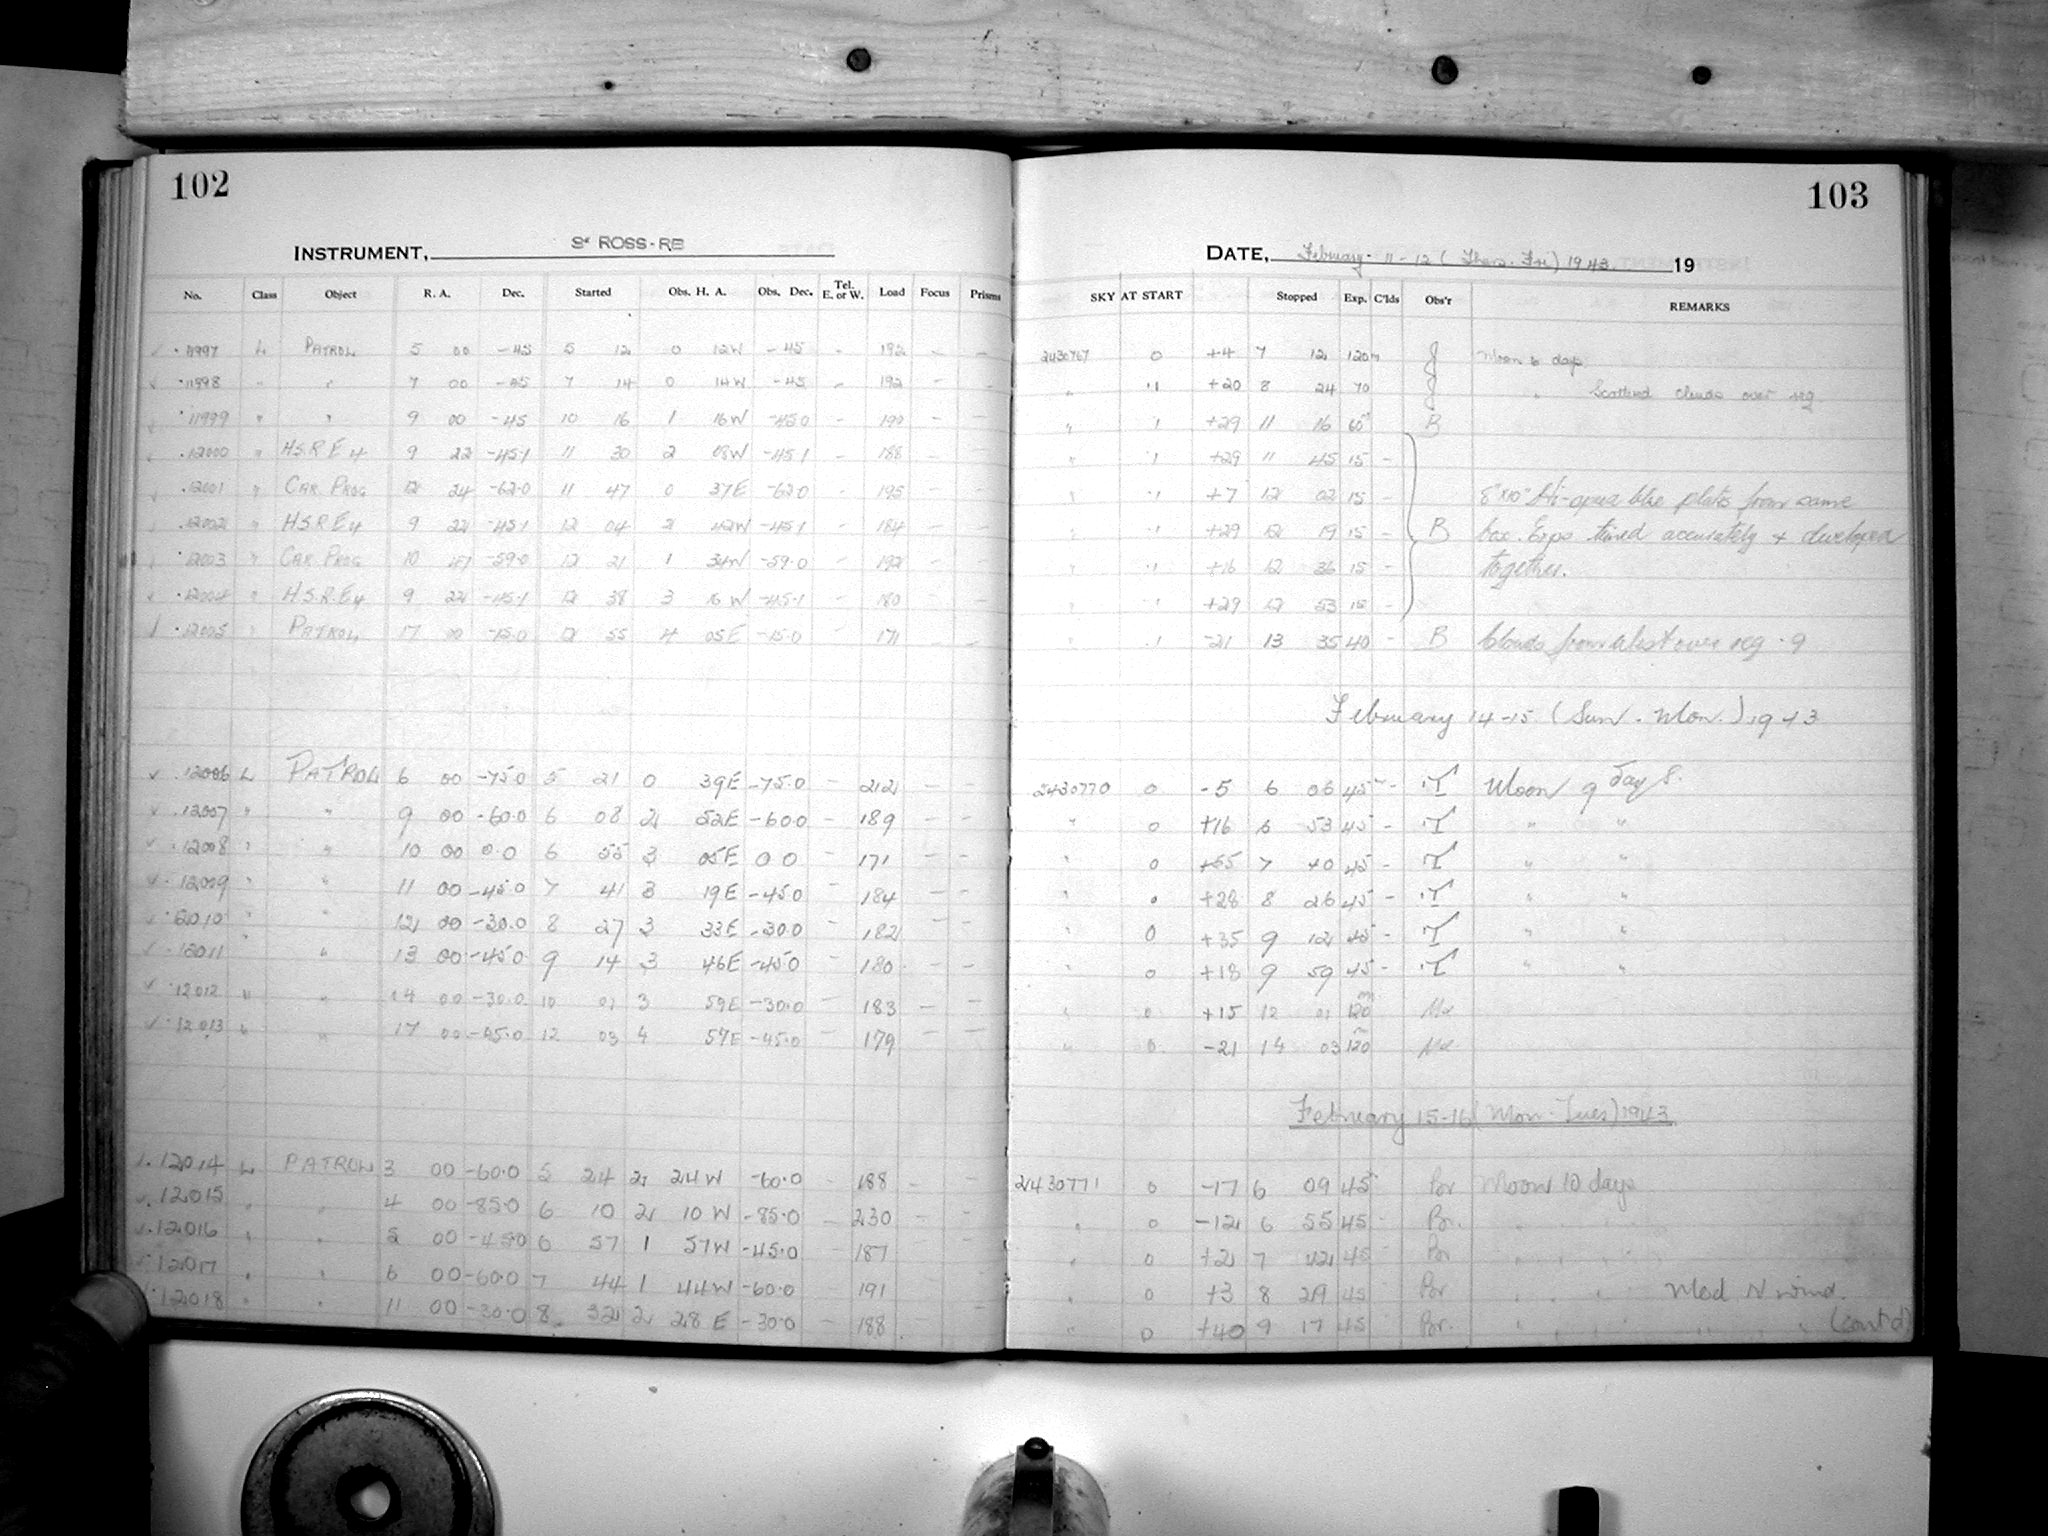 102
INSTRUMENT, 3" ROSS-RB
No. Class Object R. A. Dec. Started Obs. H. A. Obs. Dec. Tel. E. or W. Load Focus Prisms
11997 L PATROL 5 00 -45 5 12 0 12W -45 - 192 - -
11998 " " 7 00 -45 7 14 0 14W -45 - 192 - -
11999 " " 9 00 -45 10 16 1 16W -45.0 - 190 - -
12000 " HSRE4 9 22 -45.1 11 30 2 08W -45.1 - 188 - -
12001 " CAR PROG 12 24 -62.0 11 47 0 37E -62.0 - 195 - -
12002 " HSRE4 9 22 -45.1 12 04 2 42W -45.1 - 184 - -
12003 " CAR PROG 10 47 -59.0 12 21 1 34W -59.0 - 192 - -
12004 " HSRE4 9 22 -45.1 12 38 3 16W -45.1 - 180 - -
12005 " PATROL 17 00 -15.0 12 55 4 05E -15.0 - 171 - -
12006 L PATROL 6 00 -75.0 5 21 0 39E -75.0 - 212 - -
12007 " " 9 00 -60.0 6 08 2 52E -60.0 - 189 - -
12008 " " 10 00 0.0 6 55 3 05E 0 0 - 171 - -
12009 " " 11 00 -45.0 7 41 3 19E -45.0 - 184 - -
12010 " " 12 00 -30.0 8 27 3 33E -30.0 - 182 - -
12011 " " 13 00 -45.0 9 14 3 46E -45.0 - 180 - -
12012 " " 14 00 -30.0 10 01 3 59E -30.0 - 183 - -
12013 " " 17 00 -45.0 12 03 4 57E -45.0 - 179 - -
12014 L PATROL 3 00 -60.0 5 24 2 24W -60.0 - 188 - -
12015 " " 4 00 -85.0 6 10 2 10W -85.0 - 230 - -
12016 " " 5 00 -45.0 6 57 1 57W -45.0 - 187
12017 " " 6 00 -60.0 7 44 1 44W -60.0 - 191
12018 " " 11 00 -30.0 8 32 2 28E -30.0 - 188 -
103
DATE, February 11-12 (Thurs. Fri) 1943. 19
SKY AT START Stopped Exp. C'lds Obs'r REMARKS
2430767 0 +4 7 12 120m J Moon 6 days
" .1 +20 8 24 70 J " Scattered clouds over reg
" .1 +29 11 16 60m B
" .1 +29 11 45 15 -
" .1 +7 12 02 15 - 8"x10" Hi-speed blue plates from same
" .1 +29 12 19 15 - B box. Exps timed accurately + developed
" .1 +16 12 36 15 - together.
" .1 +29 12 53 15 -
" .1 -21 13 35 40 - B Clouds from West over reg. 9
February 14-15 (Sun. Mon.) 1943
2430770 0 -5 6 06 45m - T Moon 9 days.
" 0 +16 6 53 45 - T " "
" 0 +55 7 40 45 - T " "
" 0 +28 8 26 45 - T " "
" 0 +35 9 12 45 - T " "
" 0 +18 9 59 45 - T " "
" 0 +15 12 01 120m
" 0 -21 14 03 120m
February 15-16 (Mon-Tues) 1943
2430771 0 -17 6 09 45 Por Moon 10 days
" 0 -12 6 55 45 - Por. " "
" 0 +2 7 42 45 - Por " " "
" 0 +3 8 29 45 Por " " " Mod N wind.
" 0 +40 9 17 45 Por. " " " " " (cont'd)